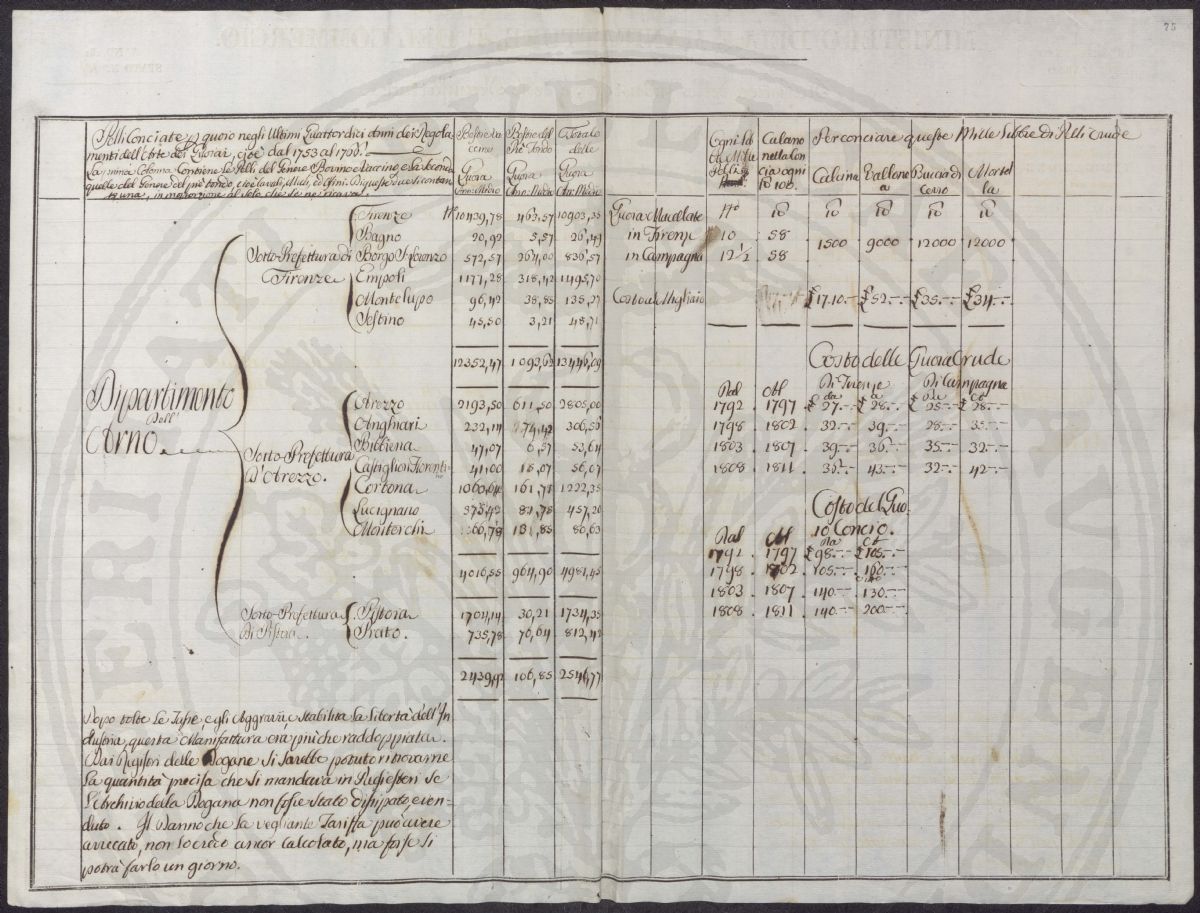 75
Pelli Conciate per quoio negli Ultimi Quattordici Anni dei Regola
menti dell'Arte dei Quoiai, cioè dal 1753 al 1766.
La prima Colonna Contiene le Pelli del Genere Bovino e Vaccino, e la Seconda
quelle del Genere del piè tondo, cioè Cavali, Muli, ed Asini. Di queste due si contan
per una, in proporzione al Solo che se ne ricava.
Bestie Vac
cine
Quoia
Anno Medio
Bestie del
Piè Tondo
Quoia
Anno Medio
Totale
delle
Quoia
An: Medio
Ogni
Calano
nella Con
cia ogni
lb 100.
Per conciare queste Mille Libbre di Pelli crude
Calcina
Vallone
a
Buccia di
Cerro
Mortel
la
Firenze No 10439,78 463,57 10903,35
Bagno 20,92 5,57 26,49
Sotto-Prefettura di Borgo S. Lorenzo 572,57 264,00 836,57
Firenze Empoli 1177,28 318,42 1495,70
Montelupo 96,42 38,85 135,27
Sestino 45,50 3,21 48,71
12352,47 1093,62 13446,09
Quoia Macellate No lb lb lb lb lb
in Firenze 10 58
1500 9000 12000 12000
in Campagna 12 1/2 58
Costo al Migliaio £17.10.-- £52.-- £35.-- £34.--
Dipartimento
dell'
Arno.
Sotto-Prefettura
D'Arezzo.
Arezzo 2193,50 611,50 2805,00
Anghiari 232,14 74,42 306,56
Bibbiena 47,07 6,57 53,64
Castiglion Fiorenti
no 41,00 15,07 56,07
Cortona 1060,64 161,71 1222,35
Lucignano 375,42 81,78 457,20
Monterchi 66,78 13,85 80,63
4016,55 964,90 4981,45
Sotto-Prefettura
di Pistoia.
Pistoia 1704,14 30,21 1734,35
Prato. 735,78 76,64 812,42
2439,92 106,85 2546,77
Costo delle Quoia Crude
Dal Al Di Firenze Di Campagna
da a Da a
1792 . 1797 £ 27.-- £ 28.-- £ 25.-- £ 28.--
1798 . 1802 . 32.-- 39.-- 28.-- 35.--
1803 . 1807 . 39.-- 36.-- 35.-- 32.--
1808 . 1811 . 35.-- 43.-- 32.-- 42.--
Costo del Quo
io Concio.
Dal Al Da A
1792 . 1797 £ 98.-- £ 105.--
1798 . 1802 . 105.-- 160.--
1803 1807 140.-- 130.--
1808 . 1811 . 140.-- 200.--
Dopo tolte le Tasse, e gli Aggravii, e Stabilita la Libertà dell'In
dustria, questa Manifattura era più che raddoppiata.
Dai Registri delle Dogane si Sarebbe potuto ritrovarne
la quantità precisa che si mandava in Paesi esteri se
l'Archivio della Dogana non fosse Stato dissipato, e ven-
duto. Il Danno che la vegliante Tariffa può avere
arrecato, non lo credo ancor Calcolato, ma forse si
potrà farlo un giorno.